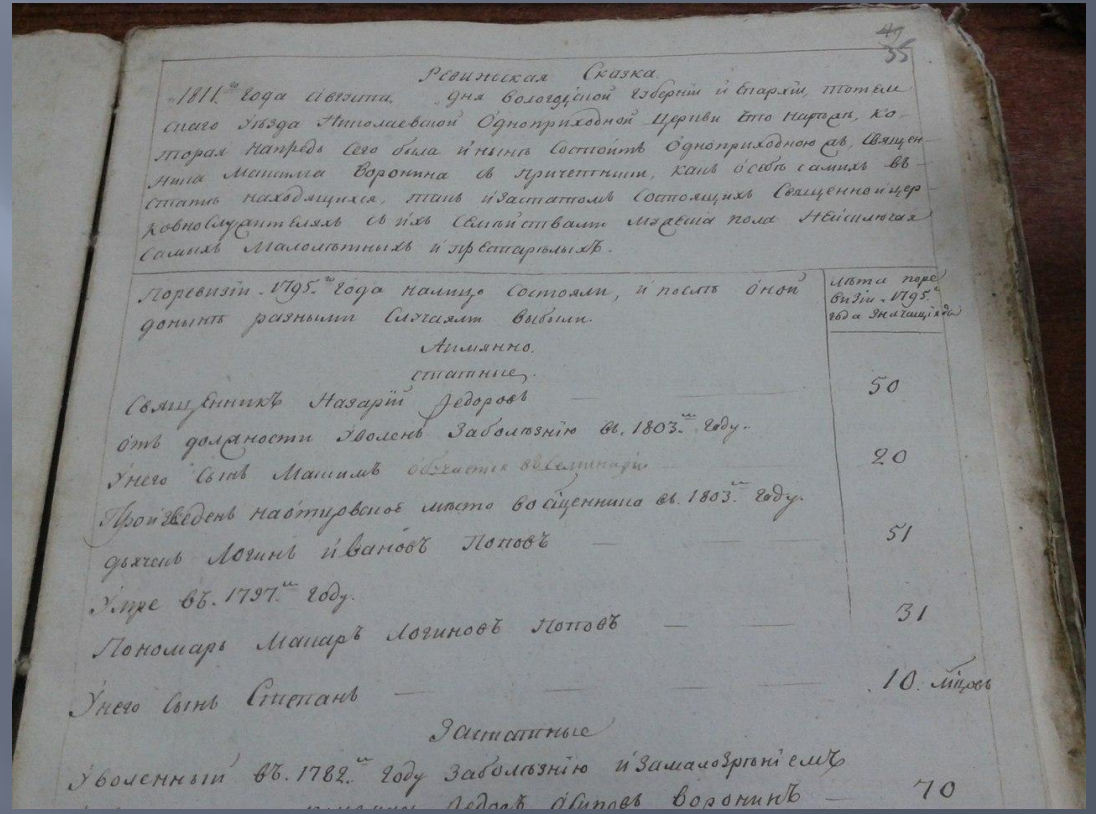 47
35
Ревижская Сказка.
1811.го Года Августа. дня Вологодской Губерніи и Епархіи, Тотем
скаго Уѣзда Николаевской Одноприходной Церкви что на, ко-
торая напредь сего была и нынѣ состоитъ Одноприходною съ, Священ-
ника Максима Воронина съ Причетники, какъ о себѣ самихъ въ
статѣ находящихся, такъ и Застатомъ состоящихъ Священно и цер
ковнослужителяхъ съ ихъ Семействамъ мужеска пола Неисключая
самихъ Малолѣтныхъ и престарѣлыхъ.
Поревизіи. 1795.го Года налицо состояли, и послѣ оной
донынѣ разными Случаями выбыли.
Лѣта поре
визіи. 1795.го
года значащіяся
Аимянно.
статные.
Священникъ Назарій Федоровъ 50
отъ должности Уволенъ Заболѣзнію въ. 1803.мъ Году.
Унего Сынъ Максимъ обучается въ Семинаріи 20
Произведенъ на отцовское мѣсто во священника въ. 1803.мъ Году.
дьячекъ Логинъ Ивановъ Поповъ 51
Умре въ. 1797.мъ Году.
Пономарь Макаръ Логиновъ Поповъ 31
Унего Сынъ Степанъ 10. мѣцовъ
Застатные
Уволенный въ. 1782.мъ Году Заболѣзнію и Замалозрѣніемъ
Федоръ Осиповъ Воронинъ 70